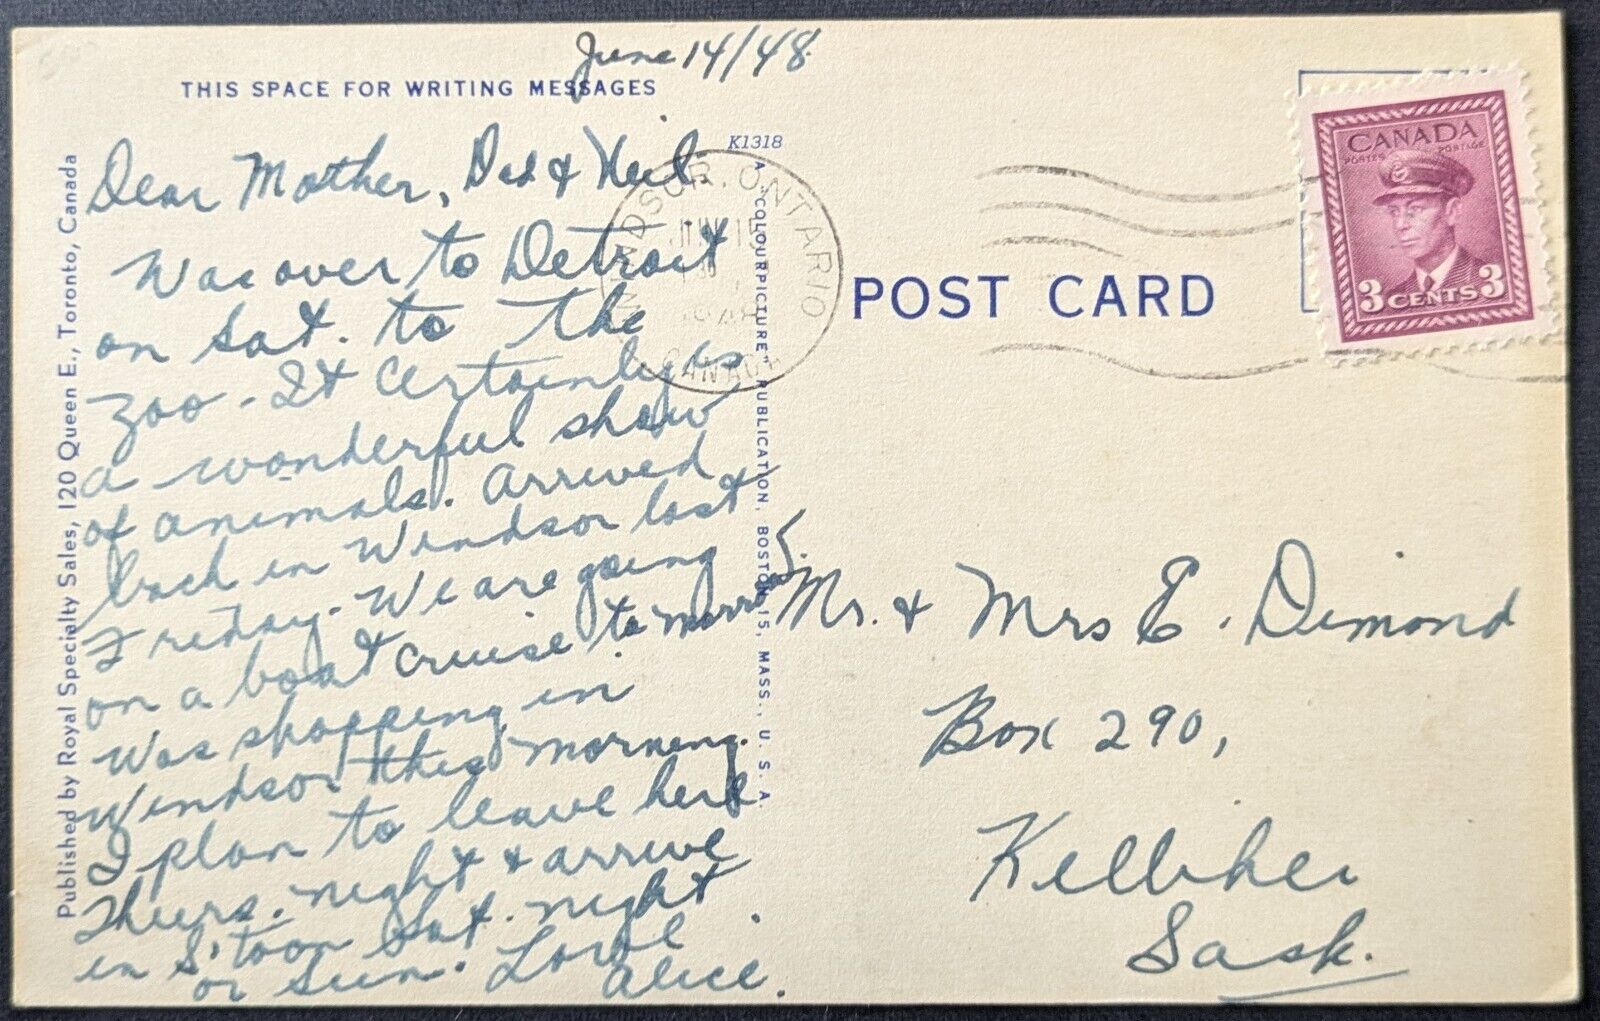 June 14/48.
THIS SPACE FOR WRITING MESSAGES
Dear Mother, Dad & Neil.
Was over to Detroit
on Sat. to the
Zoo - It certainly is
a wonderful show
of animals. Arrived
back in Windsor last
Friday. We are going
on a boat cruise to-morrow.
Was shopping in
Windsor this morning.
I plan to leave here
Thurs. night & arrive
in S'toon Sat. night
or Sun. Love
Alice.
Published by Royal Specialty Sales, 120 Queen E., Toronto, Canada
K1318
A "COLOURPICTURE" PUBLICATION, BOSTON 15, MASS., U.S.A.
WINDSOR. ONTARIO
JUN 15
CANADA
POST CARD
CANADA
POSTES POSTAGE
3 CENTS 3
Mr. & Mrs E. Dimond
Box 290,
Kelliher
Sask.